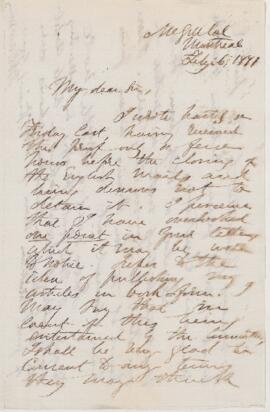 McGill Col
Montreal
Feby 6, 1871
My dear Sir,
I wrote hastily on
Friday last, having received
the proof only a few
hours before the closing of
the English mails and
being desirous not to
detain it. I perceive
that I have overlooked
one point in your letter
which it may be well
to notice
idea of publishing my
articles in book form. I
may say that in
case of this being
entertained by the Committee
I shall be very glad to
consent to any terms
they may think